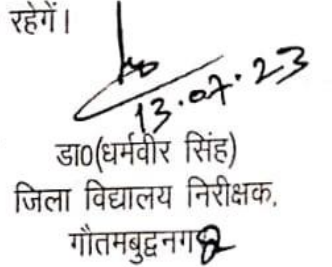 रहेगें।
13.07.23
डा0(धर्मवीर सिंह)
जिला विद्यालय निरीक्षक,
गौतमबुद्वनगर